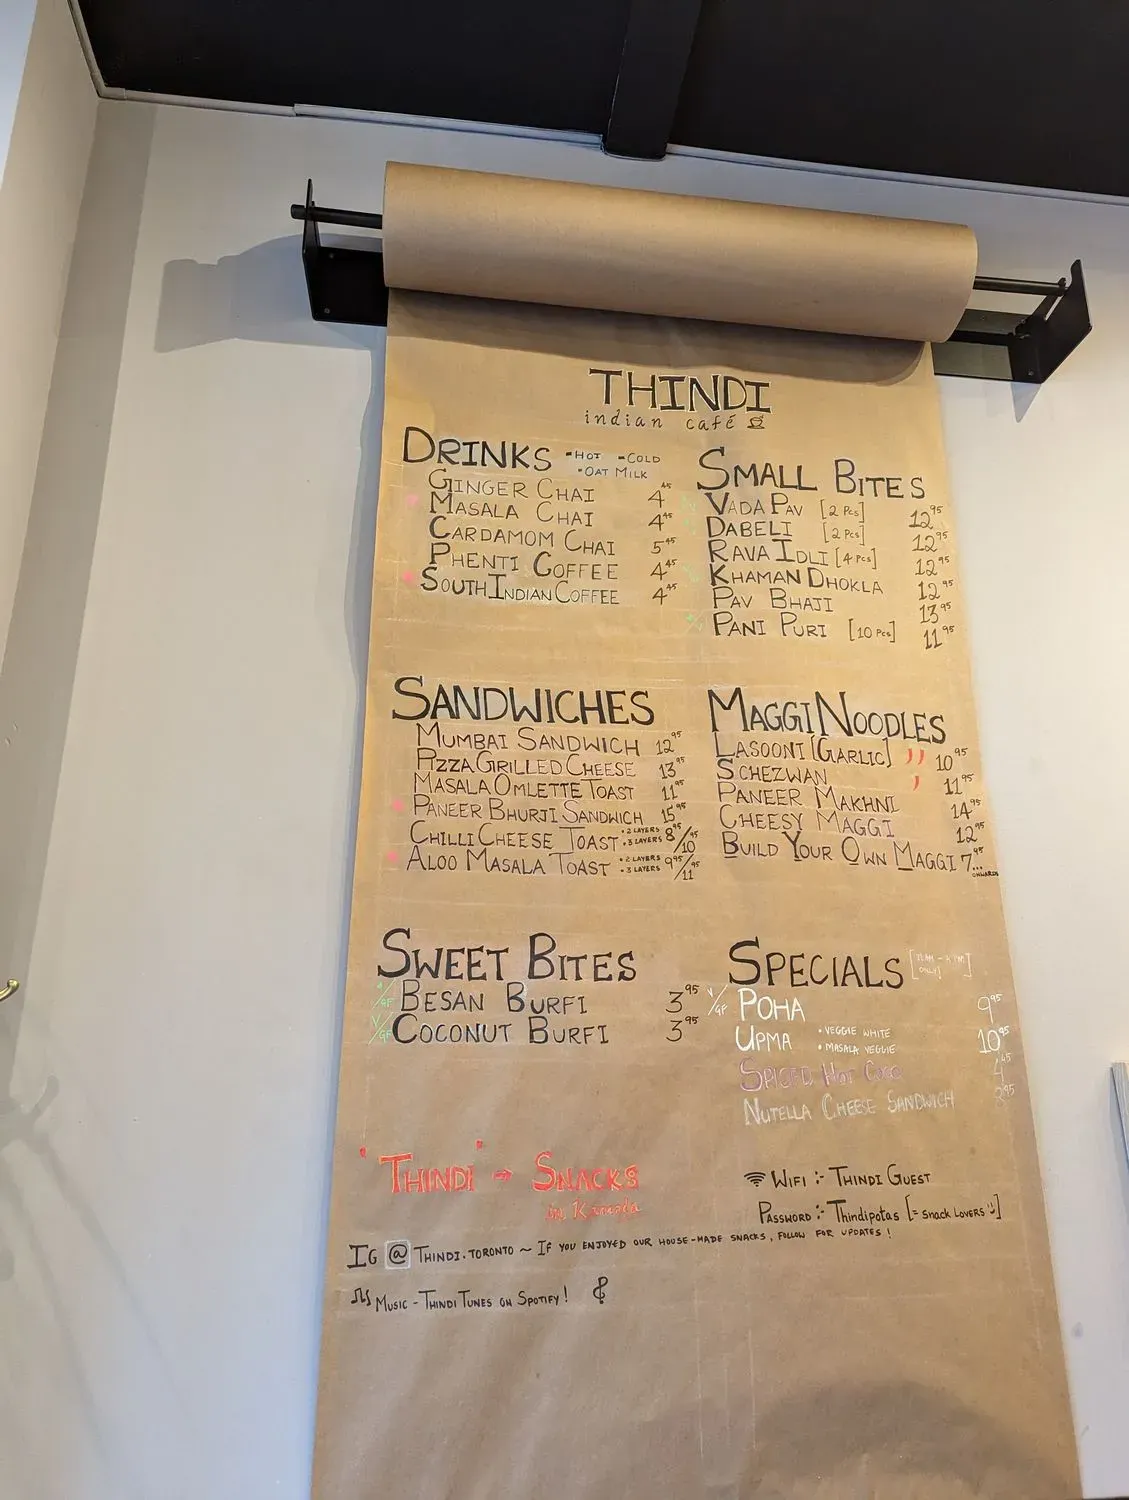 THINDI
indian café
DRINKS -HOT -COLD
-OAT MILK
GINGER CHAI 4.45
MASALA CHAI 4.45
CARDAMOM CHAI 5.45
PHENTI COFFEE 4.45
SOUTH INDIAN COFFEE 4.45
SMALL BITES
VADA PAV [2 Pcs] 12.95
DABELI [2 Pcs] 12.95
RAVA IDLI [4 Pcs] 12.95
KHAMAN DHOKLA 12.95
PAV BHAJI 13.95
PANI PURI [10 Pcs] 11.95
SANDWICHES
MUMBAI SANDWICH 12.95
PIZZA GRILLED CHEESE 13.95
MASALA OMLETTE TOAST 11.95
PANEER BHURJI SANDWICH 15.95
CHILLI CHEESE TOAST • 2 LAYERS 8.95/
• 3 LAYERS 10
ALOO MASALA TOAST • 2 LAYERS 9.95/
• 3 LAYERS 11.95
MAGGI NOODLES
LASOONI [GARLIC] 10.95
SCHEZWAN 11.95
PANEER MAKHNI 14.95
CHEESY MAGGI 12.95
BUILD YOUR OWN MAGGI 7.95...
ONWARDS
SWEET BITES
V/GF BESAN BURFI 3.95
V/GF COCONUT BURFI 3.95
SPECIALS
ONLY]
V/GF POHA 9.95
UPMA • VEGGIE WHITE 10.95
• MASALA VEGGIE
SPICED HOT COCO 4.45
NUTELLA CHEESE SANDWICH 8.95
"THINDI" → SNACKS
in Kannada
WIFI :- THINDI GUEST
PASSWORD :- Thindipotas [= SNACK LOVERS :)]
IG @ THINDI.TORONTO ~ IF YOU ENJOYED OUR HOUSE-MADE SNACKS, FOLLOW FOR UPDATES!
MUSIC - THINDI TUNES ON SPOTIFY!